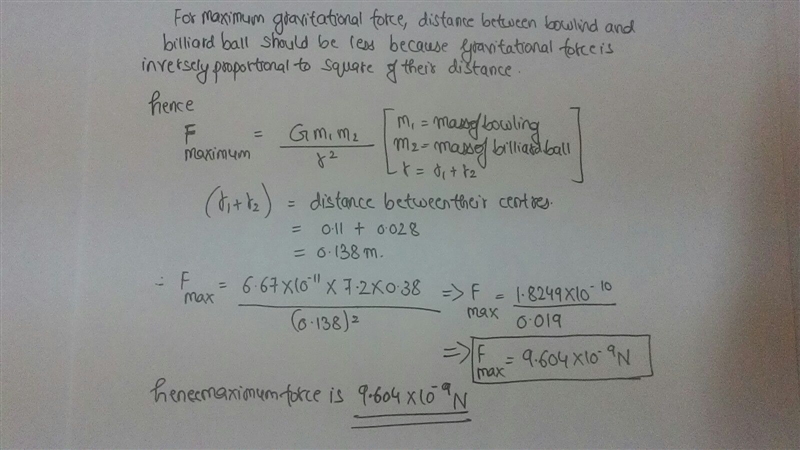 For maximum gravitational force, distance between bowlind and
billiard ball should be less because gravitational force is
inversely proportional to square of their distance.
hence
F maximum = G m₁ m₂ / r² [ m₁ = mass of bowling
m₂ = mass of billiard ball
r = r₁ + r₂ ]
(r₁ + r₂) = distance between their centres.
= 0.11 + 0.028
= 0.138 m.
∴ F max = 6.67 × 10⁻¹¹ × 7.2 × 0.38 / (0.138)² => F max = 1.8249 × 10⁻¹⁰ / 0.019
=> F max = 9.604 × 10⁻⁹ N
hence maximum force is 9.604 × 10⁻⁹ N